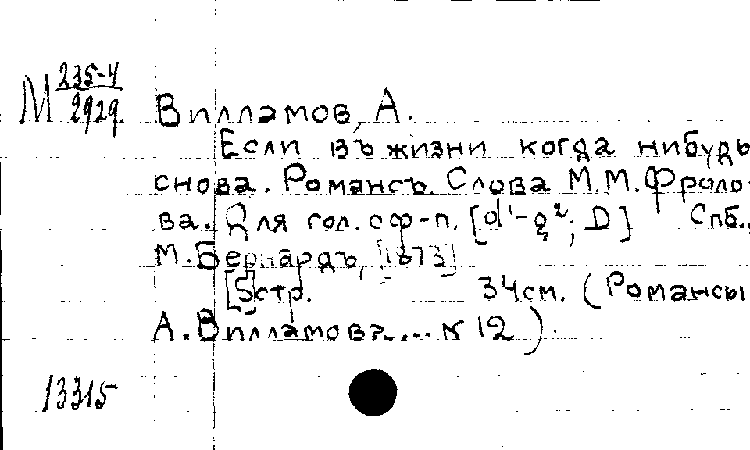 М 235-4
2929 Вилламов, А.
Если въ жизни когда нибудь
снова. Романсъ. Слова М.М.Фроло-
ва. Для гол. с ф-п. [d¹-g²; D] Спб.,
М. Бернардъ, [1873]
[5]стр. 34см. (Романсы
А. Вилламова.... № 12).
13315